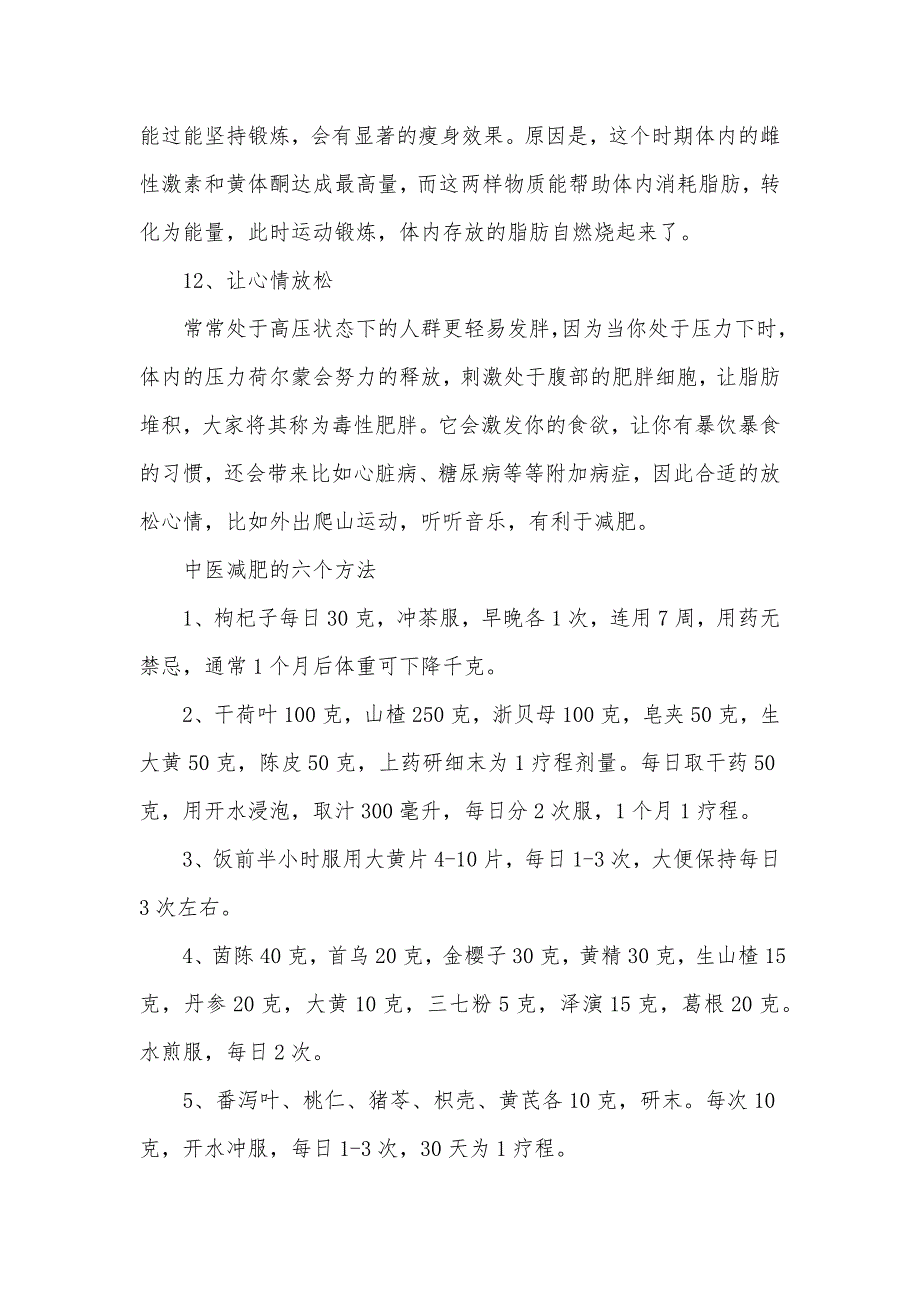 能过能坚持锻炼，会有显著的瘦身效果。原因是，这个时期体内的雌
性激素和黄体酮达成最高量，而这两样物质能帮助体内消耗脂肪，转
化为能量，此时运动锻炼，体内存放的脂肪自燃烧起来了。
12、让心情放松
常常处于高压状态下的人群更轻易发胖，因为当你处于压力下时，
体内的压力荷尔蒙会努力的释放，刺激处于腹部的肥胖细胞，让脂肪
堆积，大家将其称为毒性肥胖。它会激发你的食欲，让你有暴饮暴食
的习惯，还会带来比如心脏病、糖尿病等等附加病症，因此合适的放
松心情，比如外出爬山运动，听听音乐，有利于减肥。
中医减肥的六个方法
1、枸杞子每日 30 克，冲茶服，早晚各 1 次，连用 7 周，用药无
禁忌，通常 1 个月后体重可下降千克。
2、干荷叶 100 克，山楂 250 克，浙贝母 100 克，皂夹 50 克，生
大黄 50 克，陈皮 50 克，上药研细末为 1 疗程剂量。每日取干药 50
克，用开水浸泡，取汁 300 毫升，每日分 2 次服，1 个月 1 疗程。
3、饭前半小时服用大黄片 4-10 片，每日 1-3 次，大便保持每日
3 次左右。
4、茵陈 40 克，首乌 20 克，金樱子 30 克，黄精 30 克，生山楂 15
克，丹参 20 克，大黄 10 克，三七粉 5 克，泽演 15 克，葛根 20 克。
水煎服，每日 2 次。
5、番泻叶、桃仁、猪苓、枳壳、黄芪各 10 克，研末。每次 10
克，开水冲服，每日 1-3 次，30 天为 1 疗程。